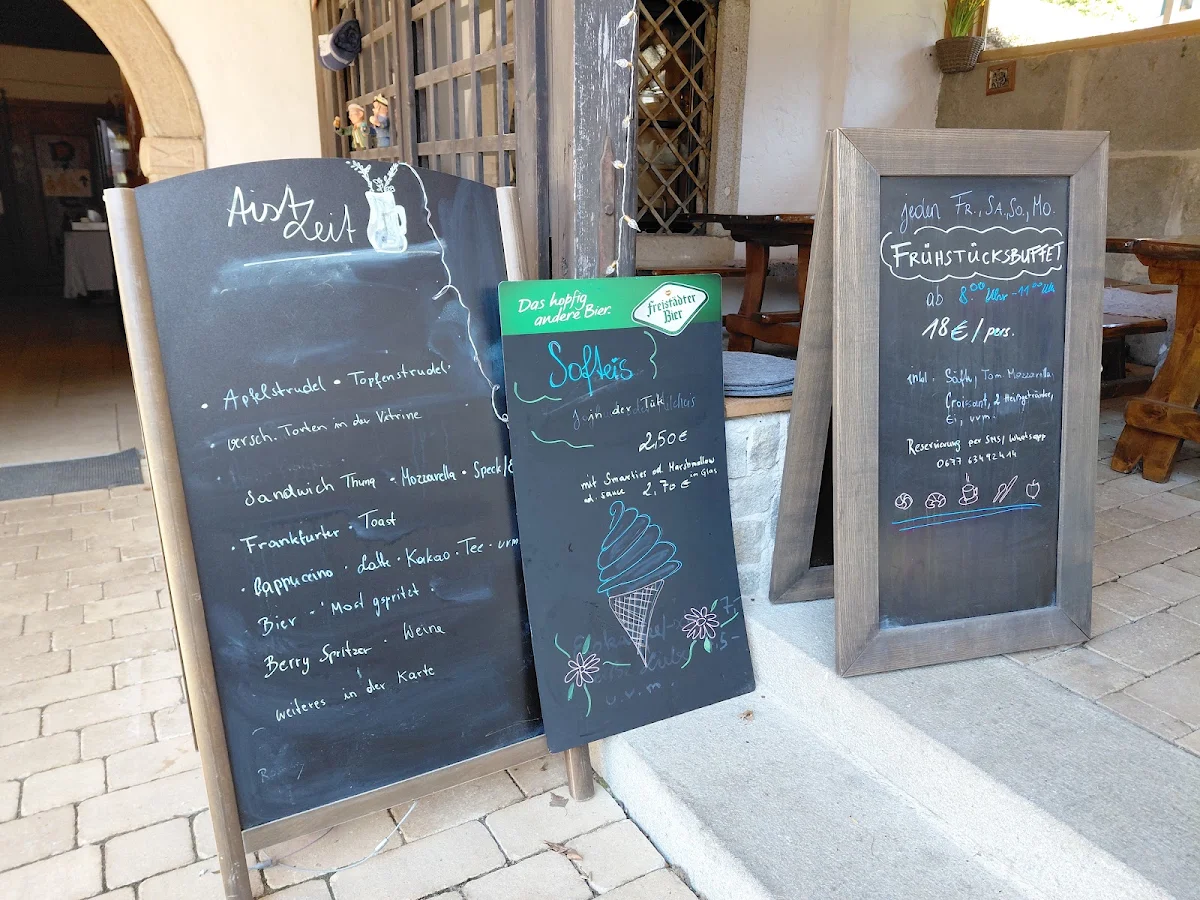 Aist
Zeit
Apfelstrudel • Topfenstrudel
versch. Torten in der Vetrine
Sandwich Thuna • Mozzarella • Speck/
Frankfurter • Toast
Cappuccino • Latte • Kakao • Tee • uvm
Bier • Most gspritzt •
Berry Spritzer • Weine
weiteres in der Karte
Das hopfig
andere Bier.
Freistädter
Bier
Softeis
in der Tüte
2,50€
mit Smarties od. Marshmallow
od. sauce 2,70 € im Glas
u.v.m.
jeden Fr., Sa., So., Mo.
FRÜHSTÜCKSBUFFET
ab 8:00 Uhr - 11:00 Uhr
18€/pers.
inkl. Säfte, Tom. Mozzarella
Croissant, 2 Heißgetränke,
Ei, uvm.
Reservierung per SMS/Whatsapp
0677 63492414